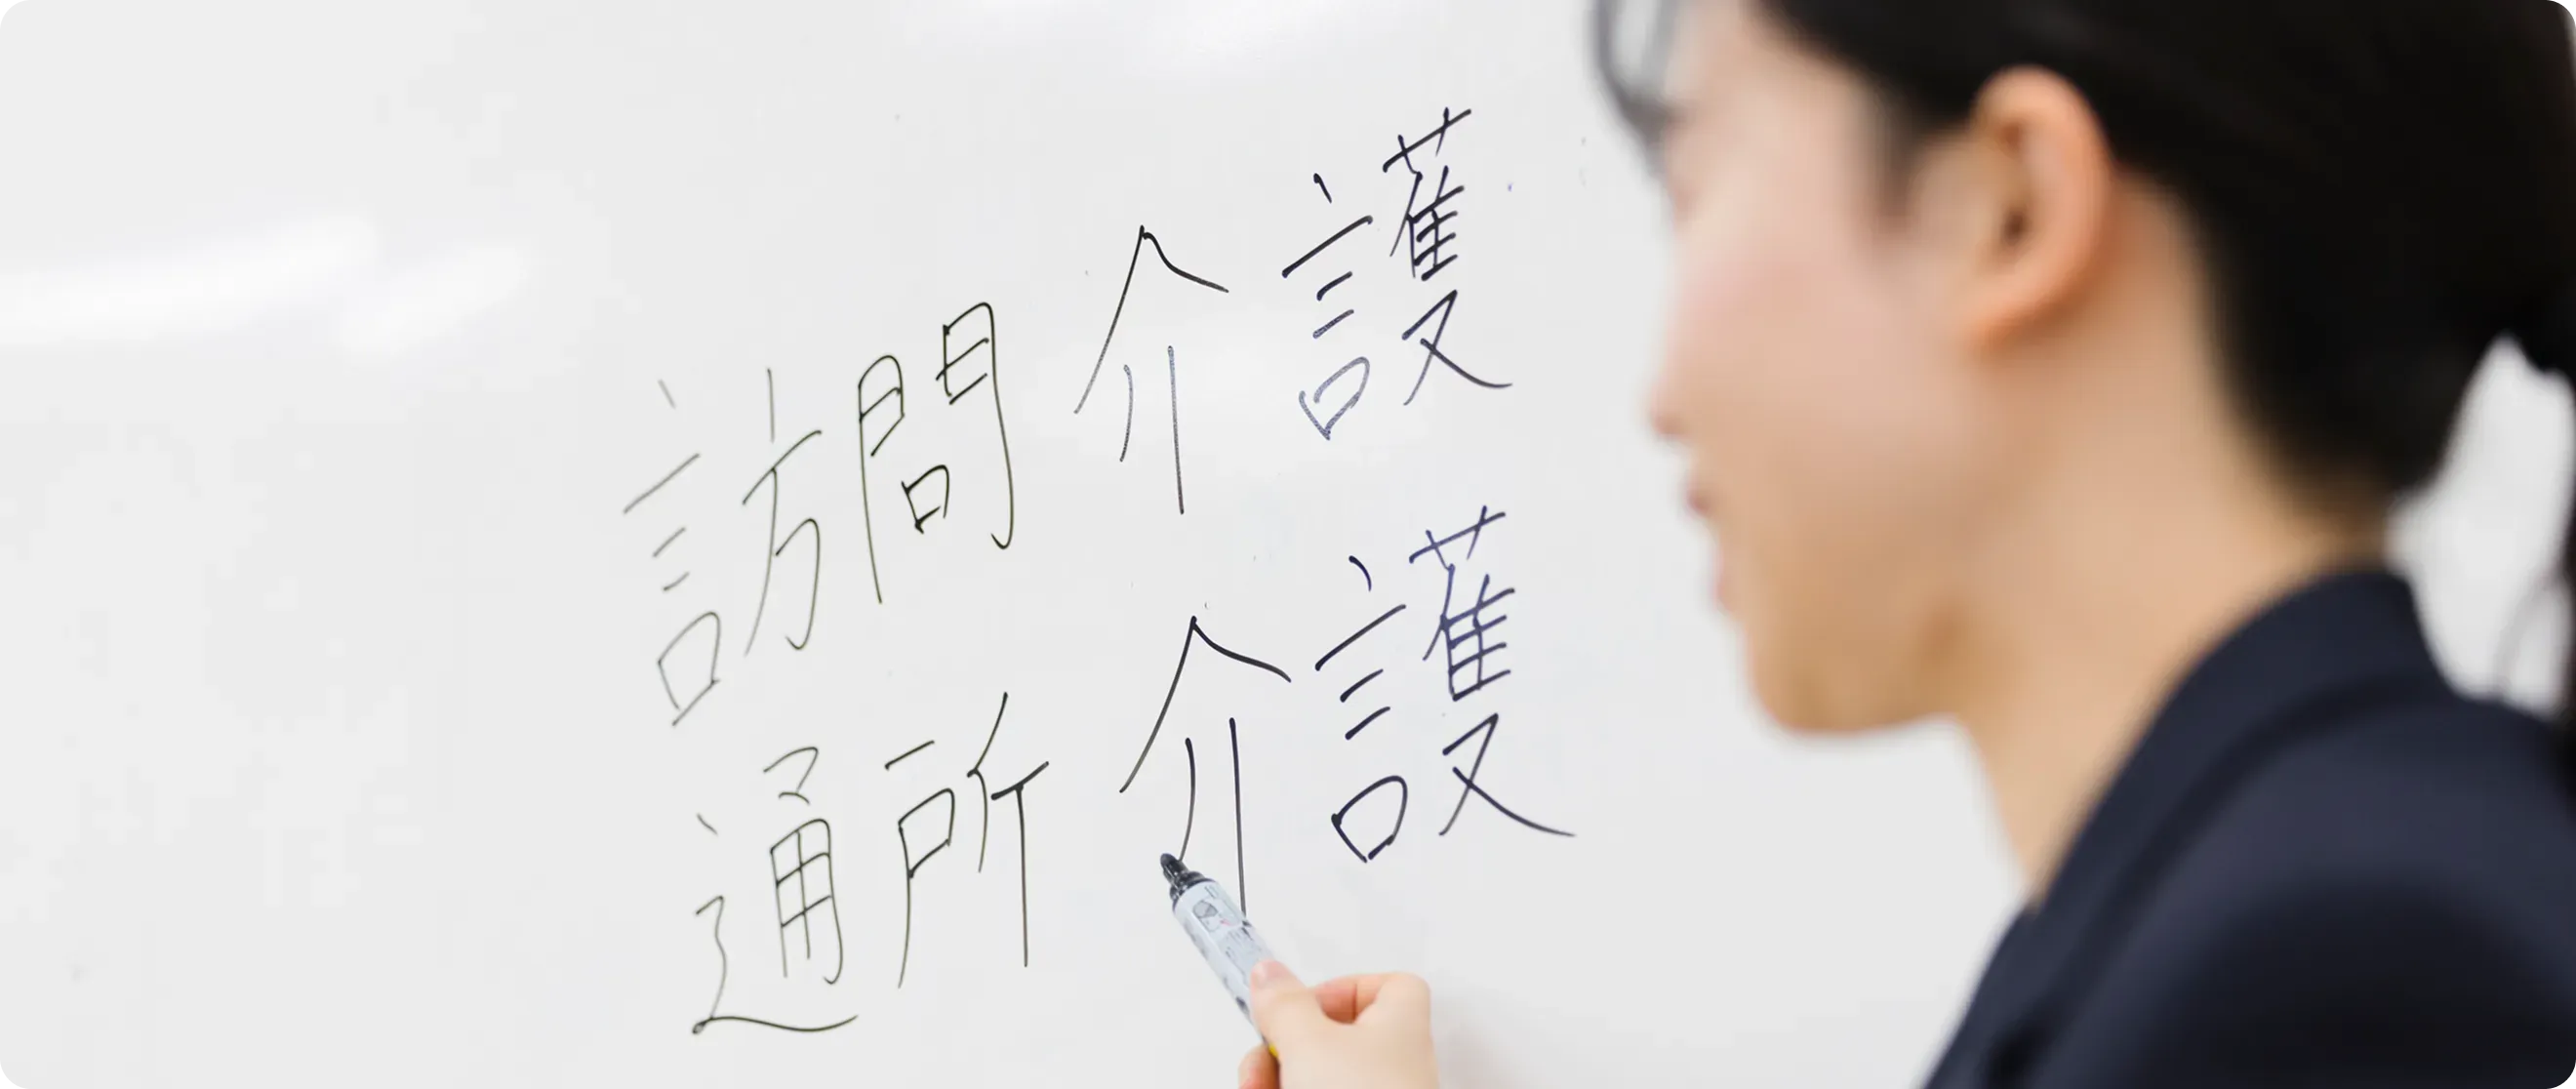 訪問介護
通所介護